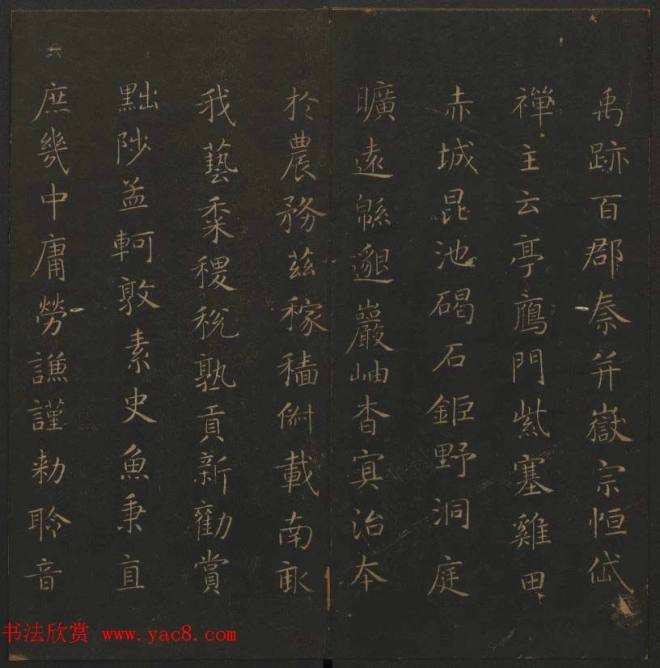 禹跡百郡秦并嶽宗恒岱
禪主云亭鴈門紫塞雞田
赤城昆池碣石鉅野洞庭
曠遠緜邈巖岫杳冥治本
於農務茲稼穡俶載南畝
我藝黍稷稅熟貢新勸賞
黜陟孟軻敦素史魚秉直
庶幾中庸勞謙謹勅聆音
六
书法欣赏 www.yac8.com